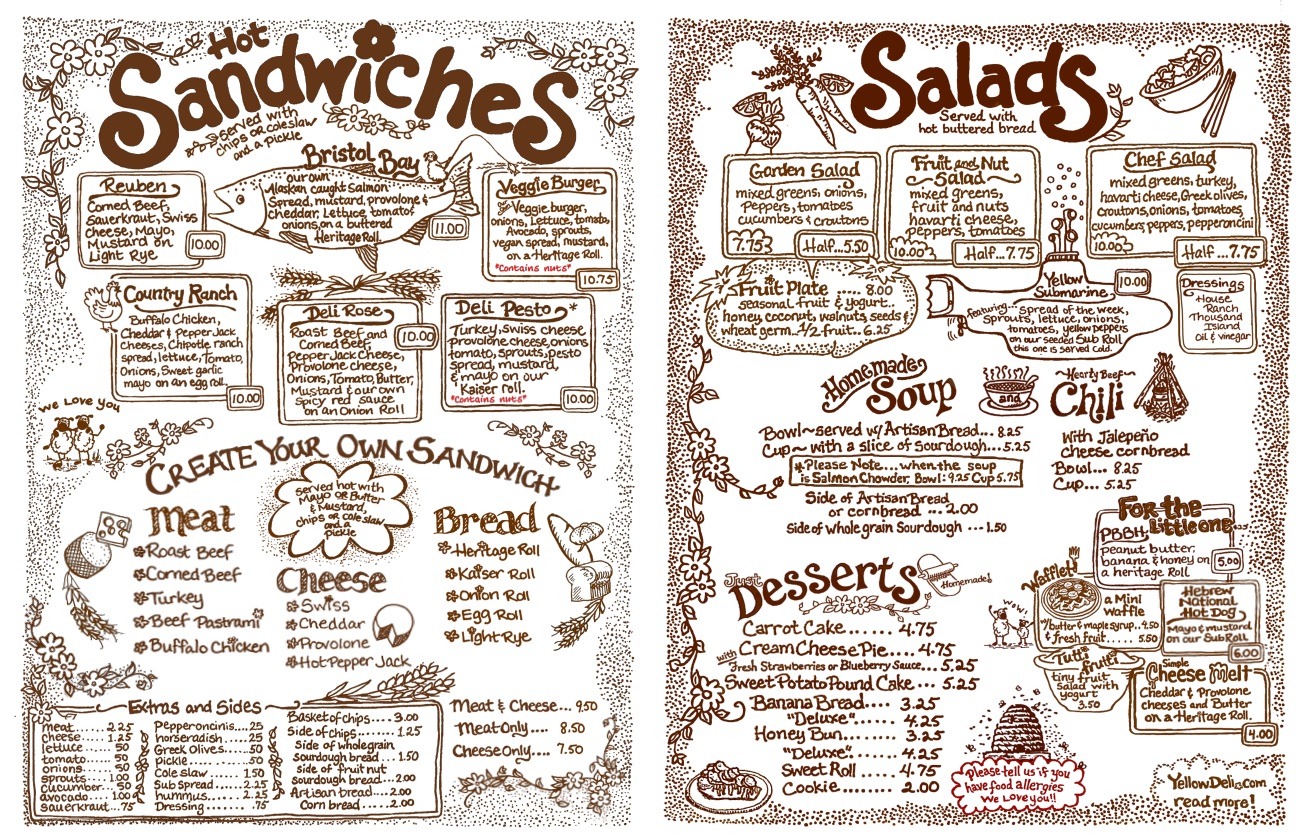 Hot
Sandwiches
Served with
chips or coleslaw
and a pickle
Reuben
Corned Beef,
Sauerkraut, Swiss
Cheese, Mayo,
Mustard on
Light Rye
10.00
Bristol Bay
our own
Alaskan caught Salmon
Spread, mustard, provolone &
cheddar, Lettuce, tomato &
onions, on a buttered
Heritage Roll.
11.00
Veggie Burger
Veggie burger,
onions, Lettuce, tomato,
Avocado, sprouts,
vegan spread, mustard,
on a Heritage Roll.
*Contains nuts*
10.75
Country Ranch
Buffalo Chicken,
Cheddar & Pepper Jack
Cheeses, Chipotle ranch
spread, lettuce, Tomato,
Onions, Sweet garlic
mayo on an egg roll.
10.00
Deli Rose
Roast Beef and
Corned Beef,
Pepper Jack Cheese,
Provolone cheese,
Onions, Tomato, Butter,
Mustard & our own
Spicy red sauce
on an Onion Roll
10.00
Deli Pesto *
Turkey, Swiss cheese
provolone cheese, onions
tomato, sprouts, pesto
spread, mustard,
& mayo on our
Kaiser roll.
*Contains nuts*
10.00
We Love You
Create Your Own Sandwich
Served hot with
Mayo or Butter
& Mustard,
chips or cole slaw
and a
pickle
Meat
Roast Beef
Corned Beef
Turkey
Beef Pastrami
Buffalo Chicken
Cheese
Swiss
Cheddar
Provolone
Hot Pepper Jack
Bread
Heritage Roll
Kaiser Roll
Onion Roll
Egg Roll
Light Rye
Extras and Sides
meat...... 2.25
cheese...... 1.25
lettuce...... 50
tomato...... 50
onions...... 50
sprouts.... 1.00
cucumber. 50
avocado.... 1.00
sauerkraut... .75
Pepperoncinis.. .25
horseradish.... .25
Greek Olives.... .50
pickle....... .50
Cole slaw... 1.50
Sub Spread.... 2.25
hummus...... 2.25
Dressing..... .75
Basket of chips.... 3.00
Side of chips..... 1.25
Side of whole grain
Sourdough bread... 1.50
side of fruit nut
sourdough bread... 2.00
Artisan bread.... 2.00
Corn bread..... 2.00
Meat & Cheese... 9.50
Meat Only.... 8.50
Cheese Only.... 7.50
Salads
Served with
hot buttered bread
Garden Salad
mixed greens, onions,
Peppers, tomatoes
cucumbers & croutons
7.75
Half...5.50
Fruit and Nut
Salad
mixed greens,
fruit and nuts
havarti cheese,
peppers, tomatoes
10.00
Half...7.75
Chef Salad
mixed greens, turkey,
havarti cheese, Greek olives,
croutons, onions, tomatoes,
cucumbers, peppers, pepperoncini
10.00
Half...7.75
Fruit Plate ..... 8.00
seasonal fruit & yogurt..
honey, coconut, walnuts, seeds &
wheat germ...1/2 fruit..6.25
Yellow
Submarine
10.00
featuring: Spread of the week,
Sprouts, lettuce, onions,
tomatoes, yellow peppers
on our seeded Sub Roll
this one is served cold.
Dressings
House
Ranch
Thousand
Island
Oil & vinegar
Homemade
Soup
and
Hearty Beef
Chili
Bowl~served w/ Artisan Bread... 8.25
Cup~with a slice of Sourdough...5.25
*Please Note...when the soup
is Salmon Chowder, Bowl: 9.25 Cup 5.75
Side of Artisan Bread
or cornbread ... 2.00
Side of whole grain Sourdough ... 1.50
With Jalepeño
cheese cornbread
Bowl... 8.25
Cup... 5.25
For the
Little one....
PBBH,
peanut butter,
banana & honey on
a heritage Roll
5.00
Waffle!
a Mini
Waffle
w/butter & maple syrup.. 4.50
& fresh fruit..... 5.50
Hebrew
National
Hot Dog
Mayo & mustard
on our Sub Roll
6.00
Tutti
frutti
tiny fruit
Salad with
yogurt
3.50
Simple
Cheese Melt
Cheddar & Provolone
cheeses and Butter
on a Heritage Roll.
4.00
Just
Desserts
Homemade!
wow!
Carrot Cake...... 4.75
Cream Cheese Pie.... 4.75
with fresh Strawberries or Blueberry Sauce... 5.25
Sweet Potato Pound Cake ... 5.25
Banana Bread.... 3.25
"Deluxe"..... 4.25
Honey Bun..... 3.25
"Deluxe"..... 4.25
Sweet Roll .... 4.75
Cookie....... 2.00
Please tell us if you
have food allergies
We Love you!!
YellowDeli.com
read more!